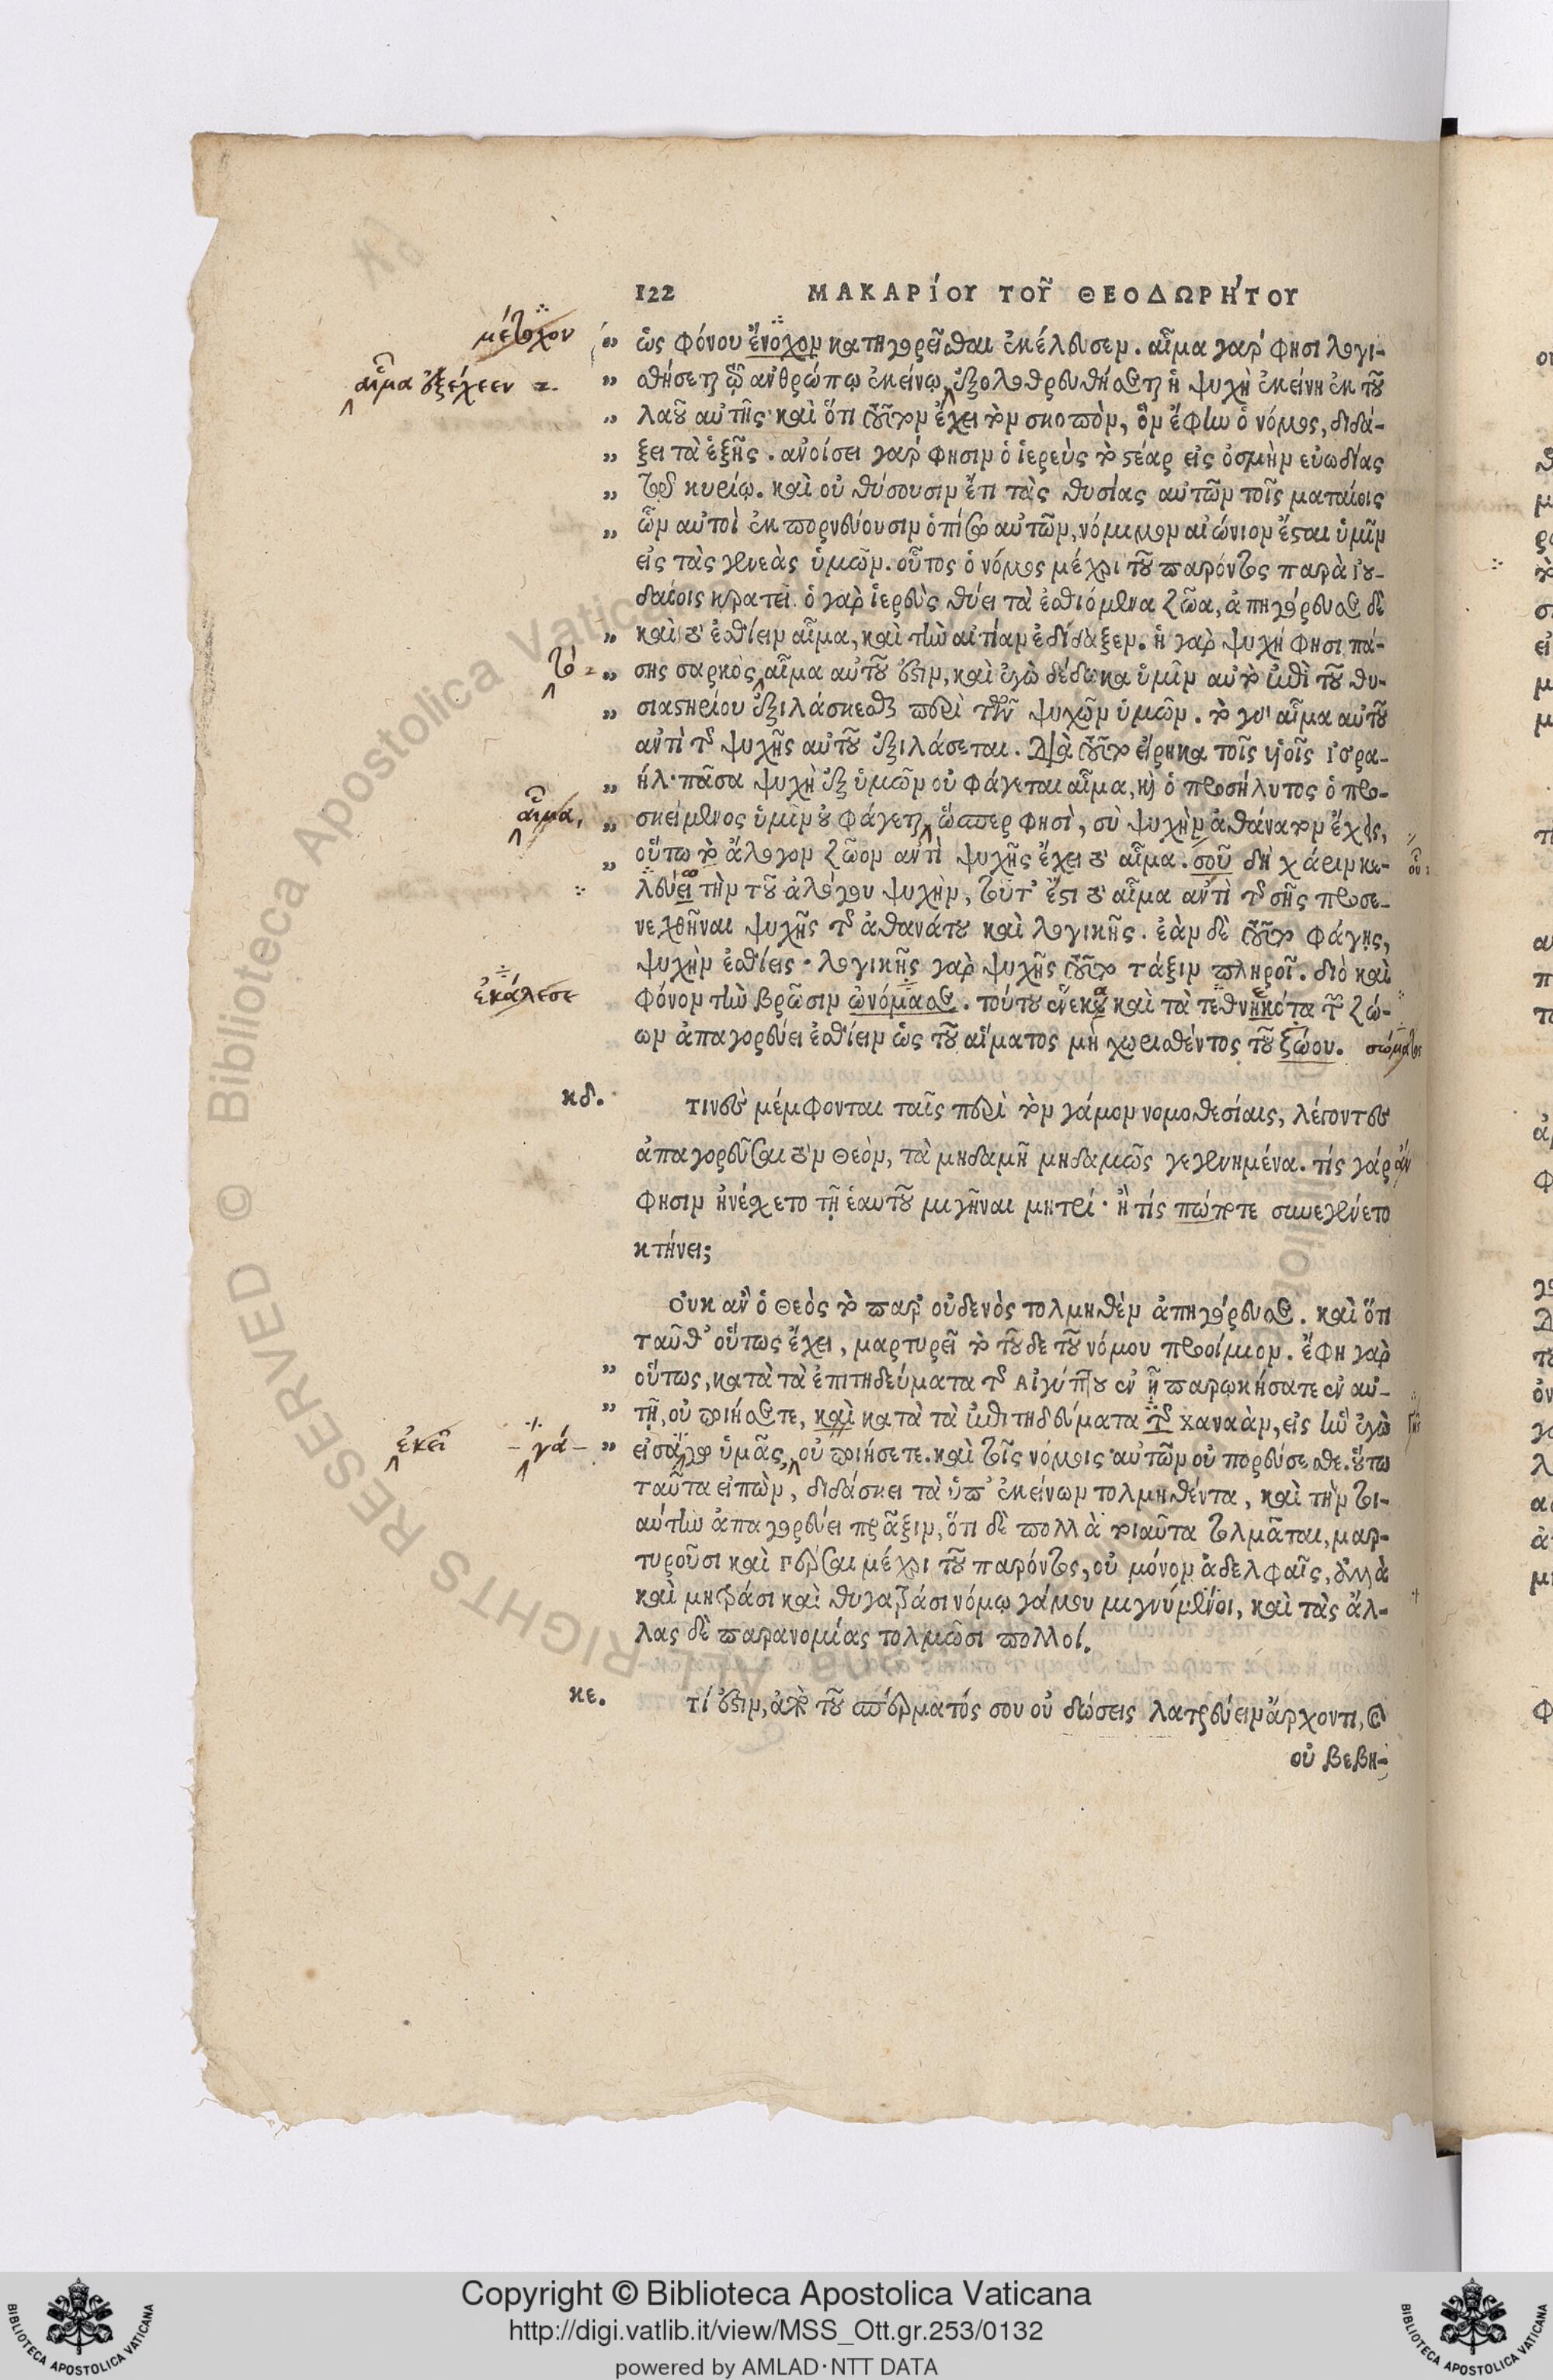 122 ΜΑΚΑΡίΟΥ ΤΟΥ͂ ΘΕΟΔΩΡΉΤΟΥ
μέτοχον
„ ὡς φόνου ἔνοχον κατηγορεῖσθαι ἐκέλευσεν. αἷμα γάρ φησι λογι-
αἷμα ἐξέχεεν
„ σθήσεται τῷ ἀνθρώπῳ ἐκείνῳ, ἐξολοθρευθήσεται ἡ ψυχὴ ἐκείνη ἐκ τοῦ
„ λαοῦ αὐτῆς· καὶ ὅτι τοῦτον ἔχει τὸν σκοπὸν, ὃν ἔφην ὁ νόμος, διδά-
„ ξει τὰ ἑξῆς. ἀνοίσει γάρ φησιν ὁ ἱερεὺς τὸ στέαρ εἰς ὀσμὴν εὐωδίας
„ τῷ κυρίῳ. καὶ οὐ θύσουσιν ἔτι τὰς θυσίας αὐτῶν τοῖς ματαίοις
„ ὧν αὐτοὶ ἐκπορνεύουσιν ὀπίσω αὐτῶν, νόμιμον αἰώνιον ἔσται ὑμῖν
εἰς τὰς γενεὰς ὑμῶν. οὗτος ὁ νόμος μέχρι τοῦ παρόντος παρὰ ἰου-
δαίοις κρατεῖ. ὁ γὰρ ἱερεὺς θύει τὰ ἐσθιόμενα ζῶα, ἀπηγόρευσε δὲ
„ καὶ τὸ ἐσθίειν αἷμα, καὶ τὴν αἰτίαν ἐδίδαξεν. ἡ γὰρ ψυχή φησι πά-
τό
„ σης σαρκὸς αἷμα αὐτοῦ ἐστιν, καὶ ἐγὼ δέδωκα ὑμῖν αὐτὸ ἐπὶ τοῦ θυ-
„ σιαστηρίου ἐξιλάσκεσθαι περὶ τῶν ψυχῶν ὑμῶν. τὸ γὰρ αἷμα αὐτοῦ
ἀντὶ τῆς ψυχῆς αὐτοῦ ἐξιλάσεται. διὰ τοῦτο εἴρηκα τοῖς υἱοῖς ἰσρα-
„ ήλ· πᾶσα ψυχὴ ἐξ ὑμῶν οὐ φάγεται αἷμα, καὶ ὁ προσήλυτος ὁ προ-
αἷμα,
„ σκείμενος ὑμῖν οὐ φάγεται, ὥσπερ φησὶ, σὺ ψυχὴν ἀθάνατον ἔχεις,
„ οὕτω τὸ ἄλογον ζῶον ἀντὶ ψυχῆς ἔχει τὸ αἷμα. σοῦ δὴ χάριν κε- οὗ
λεύει τὴν τοῦ ἀλόγου ψυχὴν, τοῦτ’ ἔστι τὸ αἷμα ἀντὶ τῆς σῆς προσε-
νεχθῆναι ψυχῆς τῆς ἀθανάτου καὶ λογικῆς. ἐὰν δὲ τοῦτο φάγῃς,
ψυχὴν ἐσθίεις· λογικῆς γὰρ ψυχῆς τοῦτο τάξιν πληροῖ. διὸ καὶ
ἐκάλεσε
φόνον τὴν βρῶσιν ὠνόμασε. τούτου ἕνεκα καὶ τὰ τεθνηκότα τῶν ζώ-
ων ἀπαγορεύει ἐσθίειν ὡς τοῦ αἵματος μὴ χωρισθέντος τοῦ ζώου. σώματος
κδ. τινὲς μέμφονται ταῖς περὶ τὸν γάμον νομοθεσίαις, λέγοντες
ἀπαγορεῦσαι τὸν θεὸν, τὰ μηδαμῆ μηδαμῶς γεγενημένα. τίς γάρ ἄν
φησιν ἠνέσχετο τῇ ἑαυτοῦ μιγῆναι μητρί· ἢ τίς πώποτε συνεγένετο
κτήνει;
Οὐκ ἂν ὁ θεὸς τὸ παρ’ οὐδενὸς τολμηθὲν ἀπηγόρευσε. καὶ ὅτι
ταῦθ’ οὕτως ἔχει, μαρτυρεῖ τὸ τοῦδε τοῦ νόμου προοίμιον. ἔφη γὰρ
„ οὕτως, κατὰ τὰ ἐπιτηδεύματα τῆς Αἰγύπτου ἐν ᾗ παρῳκήσατε ἐν αὐ-
„ τῇ, οὐ ποιήσετε, καὶ κατὰ τὰ ἐπιτηδεύματα τῆς χαναὰν, εἰς ἣν ἐγὼ γῆς
ἐκεῖ γά
„ εἰσάγω ὑμᾶς, οὐ ποιήσετε. καὶ τοῖς νόμοις αὐτῶν οὐ πορεύσεσθε. οὕτω
ταῦτα εἰπὼν, διδάσκει τὰ ὑπ’ ἐκείνων τολμηθέντα, καὶ τὴν τοι-
αύτην ἀπαγορεύει πρᾶξιν, ὅτι δὲ πολλὰ τοιαῦτα τολμᾶται, μαρ-
τυροῦσι καὶ πέρσαι μέχρι τοῦ παρόντος, οὐ μόνον ἀδελφαῖς, ἀλλὰ
καὶ μητράσι καὶ θυγατράσι νόμῳ γάμου μιγνύμενοι, καὶ τὰς ἄλ-
λας δὲ παρανομίας τολμῶσι πολλοί.
κε. τί ἐστιν, ἀπὸ τοῦ σπέρματός σου οὐ δώσεις λατρεύειν ἄρχοντι, καὶ
οὐ βεβη-
Copyright © Biblioteca Apostolica Vaticana
http://digi.vatlib.it/view/MSS_Ott.gr.253/0132
powered by AMLAD·NTT DATA